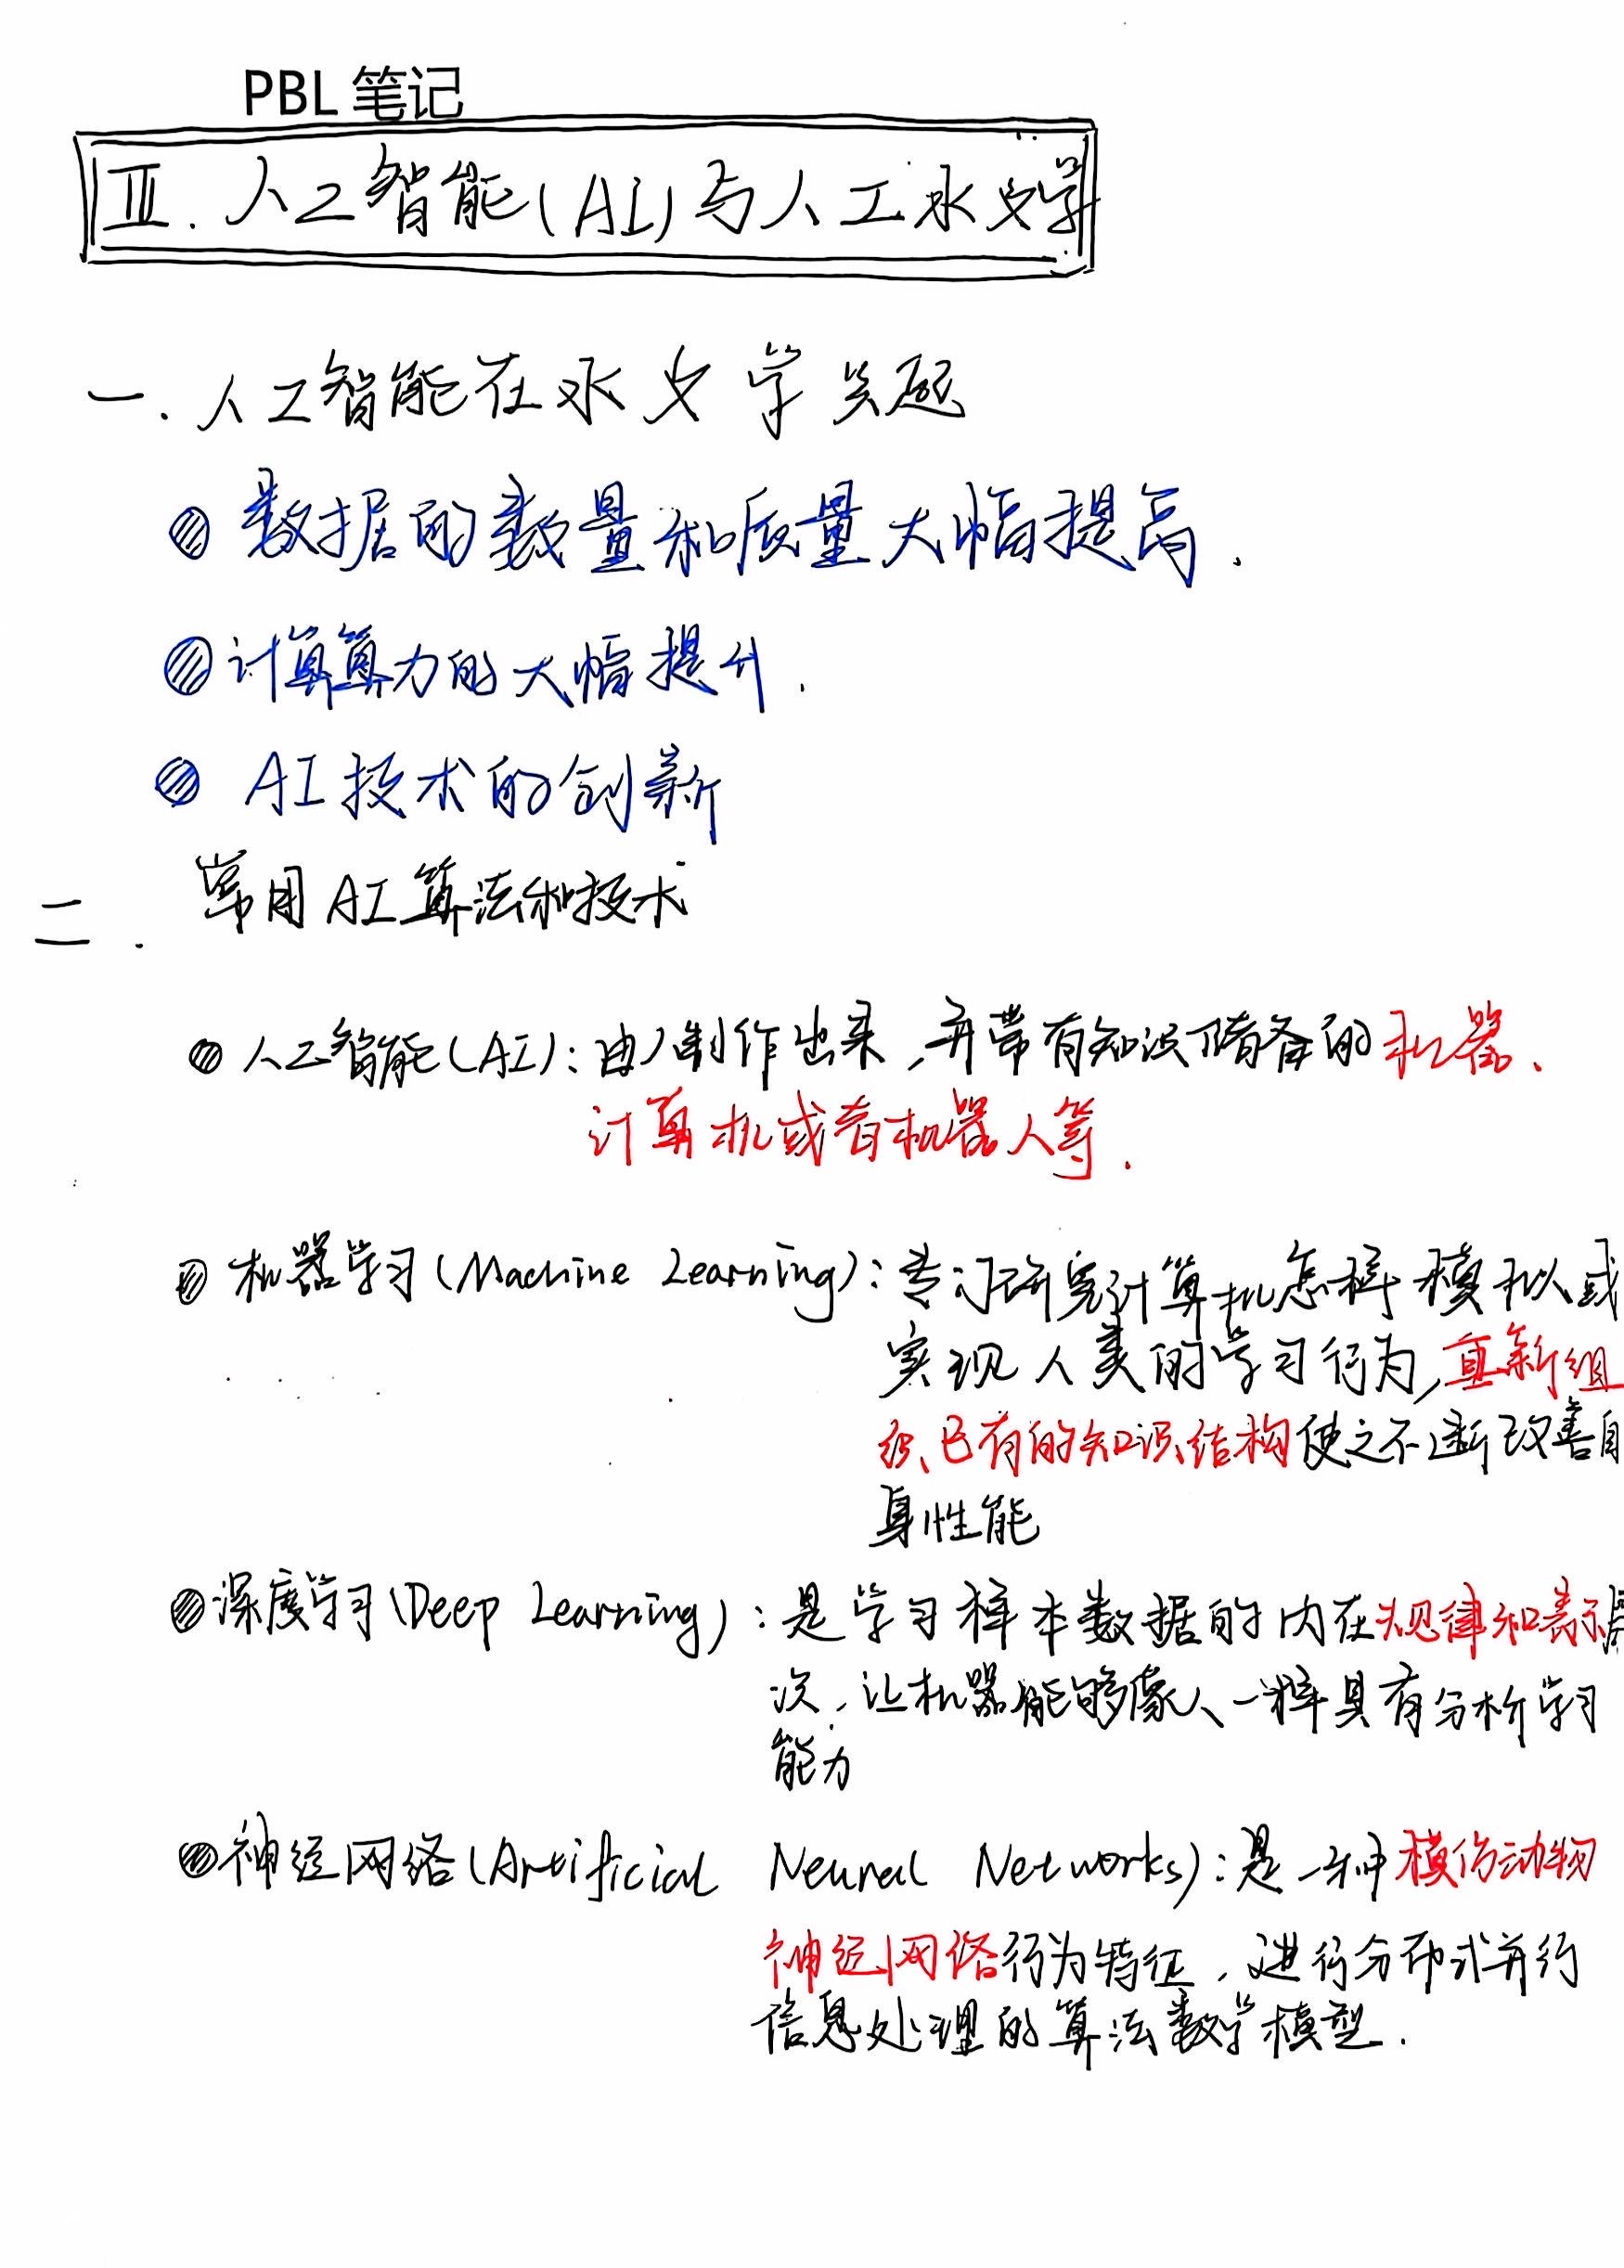 PBL 笔记
Ⅲ. 人工智能(AI)与人工水文学
一. 人工智能在水文学兴起
数据的数量和质量大幅提高.
计算算力的大幅提升.
AI 技术的创新
二. 常用AI算法和技术
人工智能(AI): 由人制作出来,并带有知识储备的机器、
计算机或者机器人等.
机器学习(Machine Learning): 专门研究计算机怎样模拟或
实现人类的学习行为,重新组
织已有的知识结构使之不断改善自
身性能
深度学习(Deep Learning): 是学习样本数据的内在规律和表示层
次,让机器能够像人一样具有分析学习
能力
神经网络(Artificial Neural Networks): 是一种模仿动物
神经网络行为特征,进行分布式并行
信息处理的算法数学模型.